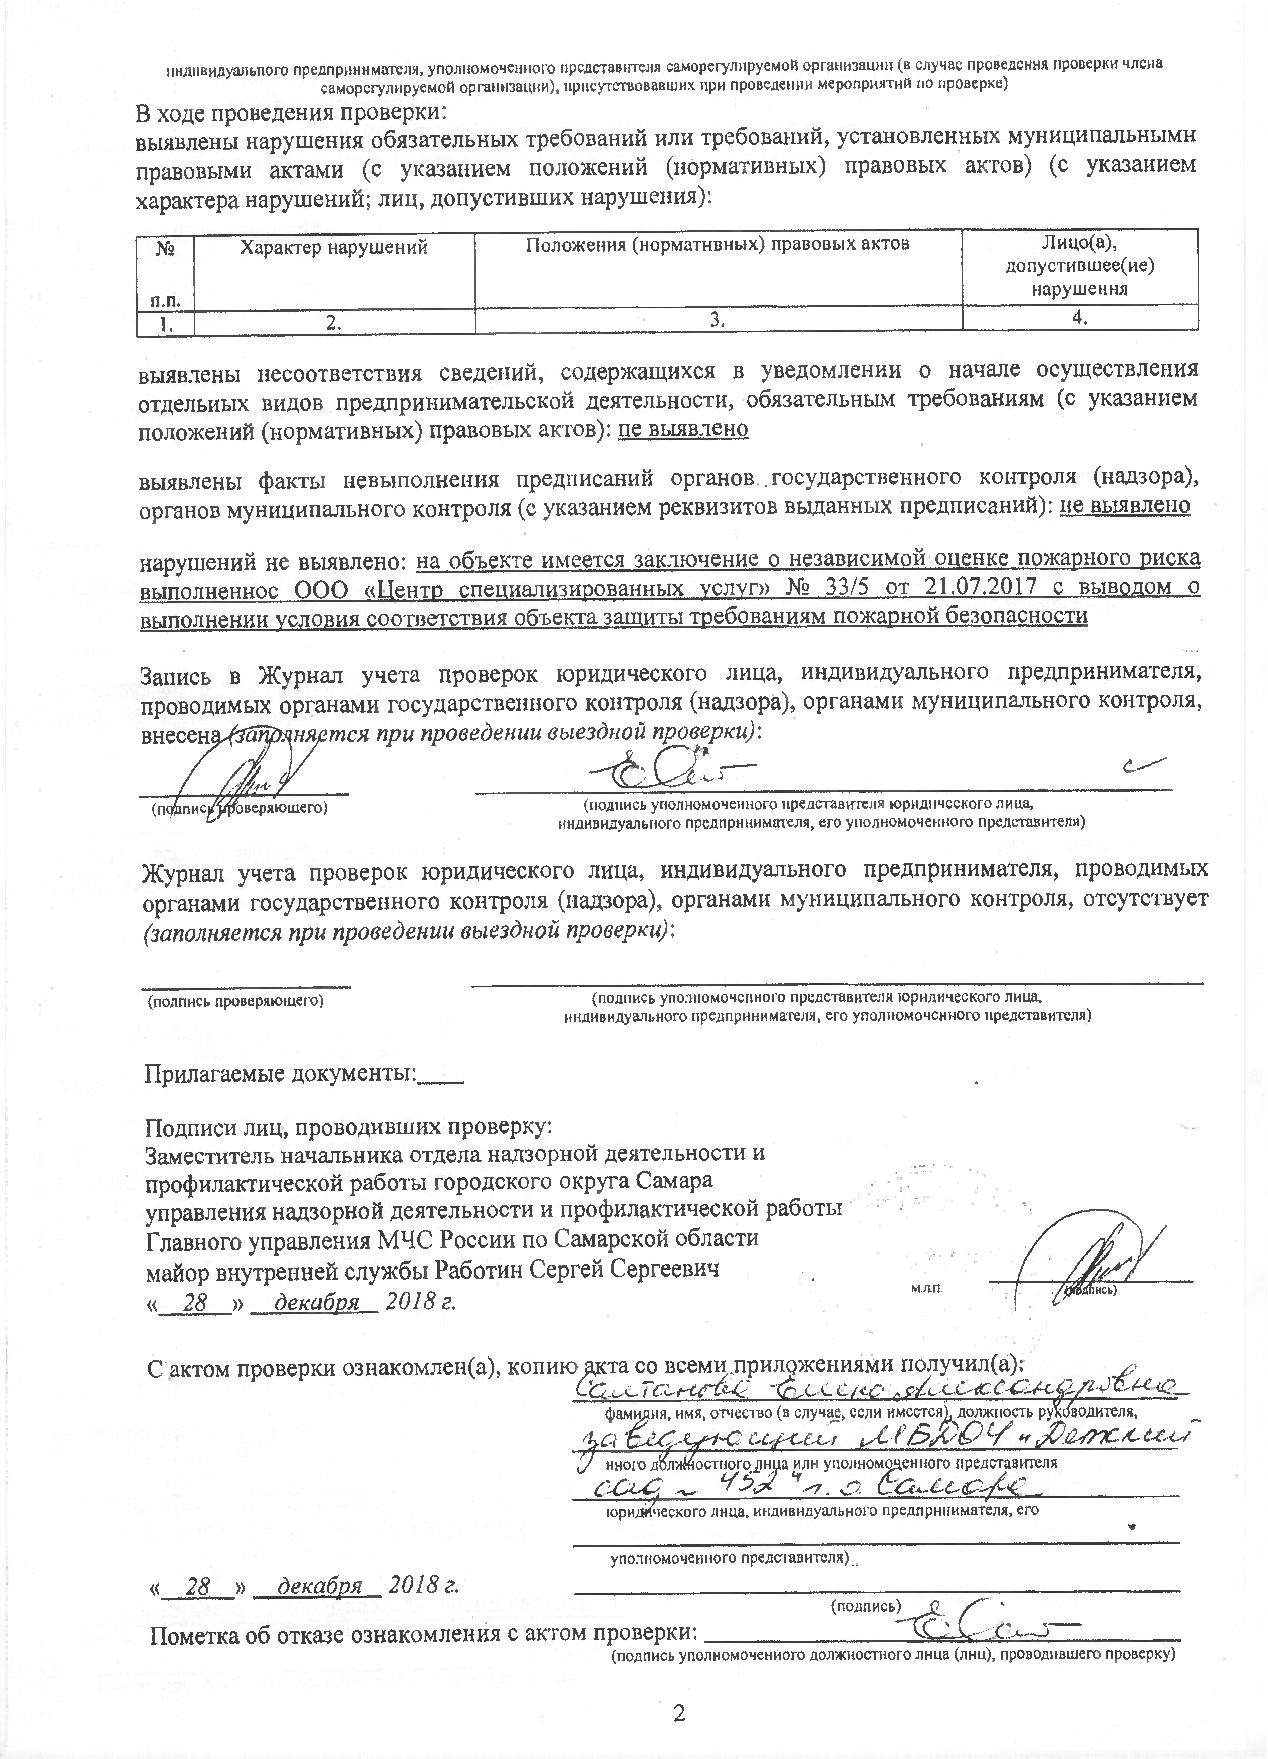 индивидуального предпринимателя, уполномоченного представителя саморегулируемой организации (в случае проведения проверки члена
саморегулируемой организации), присутствовавших при проведении мероприятий по проверке)
В ходе проведения проверки:
выявлены нарушения обязательных требований или требований, установленных муниципальными
правовыми актами (с указанием положений (нормативных) правовых актов) (с указанием
характера нарушений; лиц, допустивших нарушения):
№ п.п. Характер нарушений Положения (нормативных) правовых актов Лицо(а), допустившее(ие) нарушения
1. 2. 3. 4.
выявлены несоответствия сведений, содержащихся в уведомлении о начале осуществления
отдельных видов предпринимательской деятельности, обязательным требованиям (с указанием
положений (нормативных) правовых актов): не выявлено
выявлены факты невыполнения предписаний органов государственного контроля (надзора),
органов муниципального контроля (с указанием реквизитов выданных предписаний): не выявлено
нарушений не выявлено: на объекте имеется заключение о независимой оценке пожарного риска
выполненное ООО «Центр специализированных услуг» № 33/5 от 21.07.2017 с выводом о
выполнении условия соответствия объекта защиты требованиям пожарной безопасности
Запись в Журнал учета проверок юридического лица, индивидуального предпринимателя,
проводимых органами государственного контроля (надзора), органами муниципального контроля,
внесена (заполняется при проведении выездной проверки):
(подпись проверяющего) (подпись уполномоченного представителя юридического лица,
индивидуального предпринимателя, его уполномоченного представителя)
Журнал учета проверок юридического лица, индивидуального предпринимателя, проводимых
органами государственного контроля (надзора), органами муниципального контроля, отсутствует
(заполняется при проведении выездной проверки):
(подпись проверяющего) (подпись уполномоченного представителя юридического лица,
индивидуального предпринимателя, его уполномоченного представителя)
Прилагаемые документы:____
Подписи лиц, проводивших проверку:
Заместитель начальника отдела надзорной деятельности и
профилактической работы городского округа Самара
управления надзорной деятельности и профилактической работы
Главного управления МЧС России по Самарской области
майор внутренней службы Работин Сергей Сергеевич
м.л.п. (подпись)
«__28__» __декабря__ 2018 г.
С актом проверки ознакомлен(а), копию акта со всеми приложениями получил(а):
Елена Александровна
фамилия, имя, отчество (в случае, если имеется), должность руководителя,
заведующий МБДОУ «Детский
иного должностного лица или уполномоченного представителя
сад № 452" г. о. Самара
юридического лица, индивидуального предпринимателя, его
уполномоченного представителя)
«__28__» __декабря__ 2018 г.
(подпись)
Пометка об отказе ознакомления с актом проверки:
(подпись уполномоченного должностного лица (лиц), проводившего проверку)
2